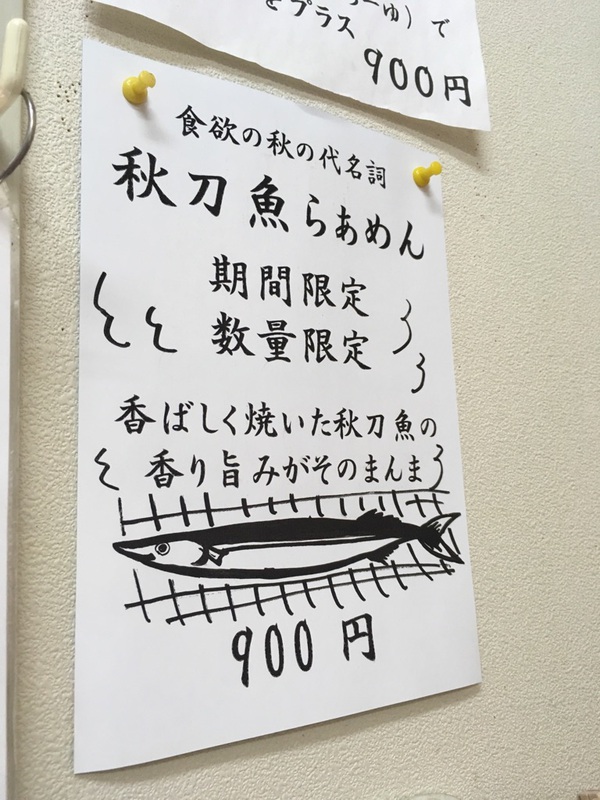 をプラス
900円
食欲の秋の代名詞
秋刀魚らあめん
期間限定
数量限定
香ばしく焼いた秋刀魚の
香り旨みがそのまんま
900円